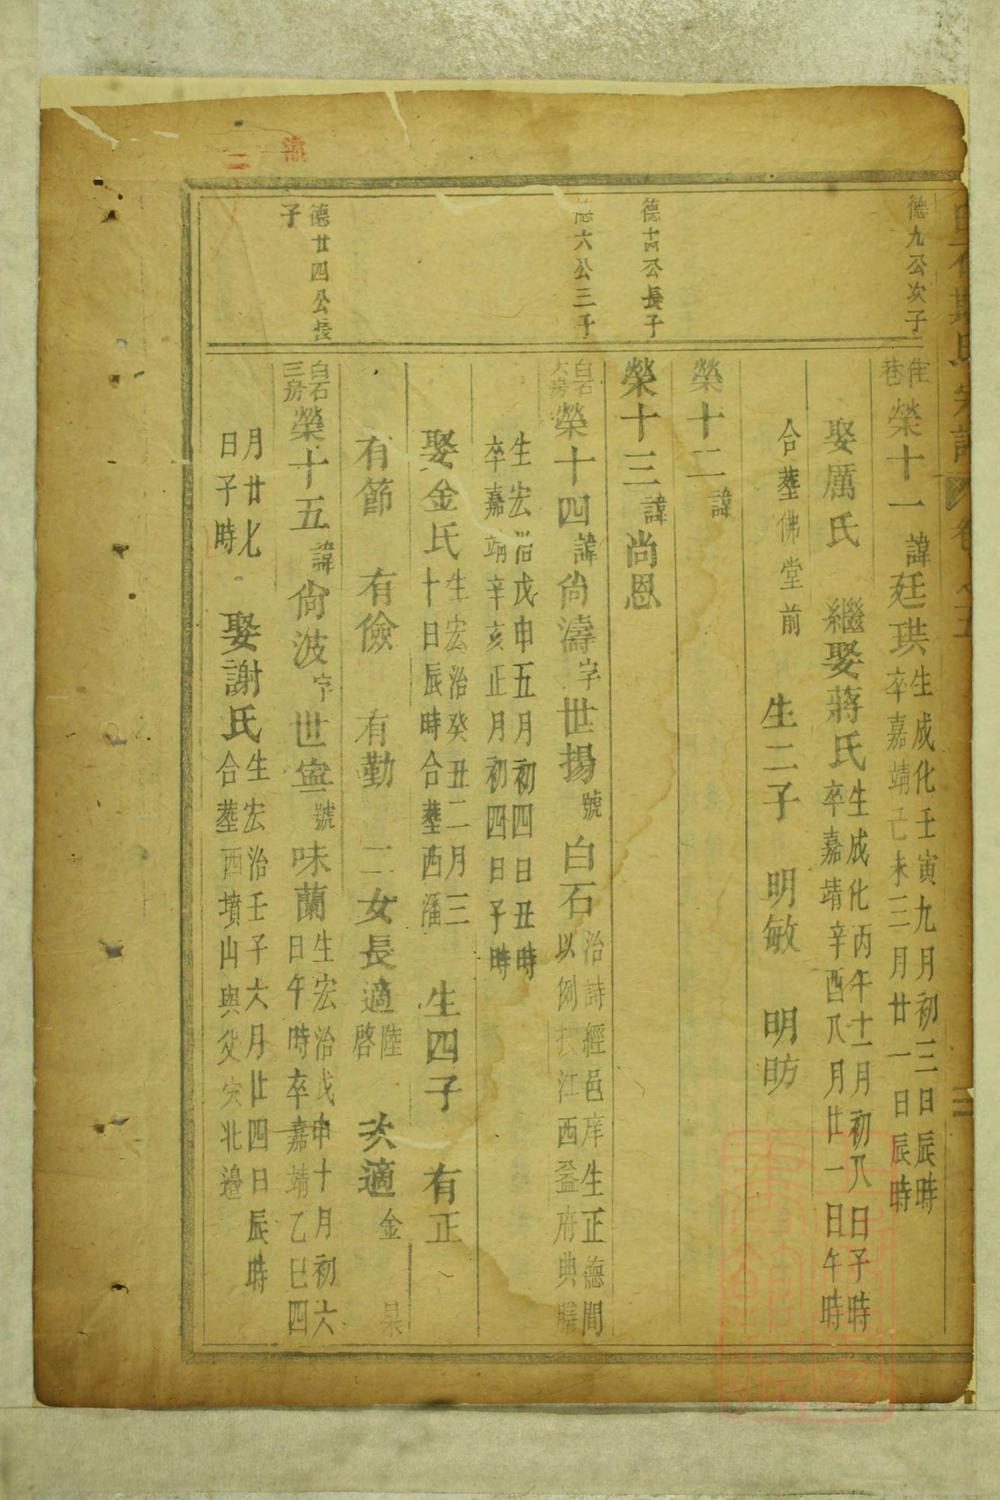 德九公次子
住巷榮十一諱廷珙生成化壬寅九月初三日辰時
卒嘉靖己未三月廿一日辰時
娶厲氏 繼娶蔣氏生成化丙午十二月初八日子時
卒嘉靖辛酉八月廿一日午時
合塟佛堂前 生二子 明敏 明昉
榮十二諱
德十四公長子
榮十三諱尚恩
德六公三子
白石大房榮十四諱尙濤字世揚號白石治詩經邑庠生正德間
以例授江西益府典膳
生宏治戊申五月初四日丑時
卒嘉靖辛亥正月初四日子時
娶金氏生宏治癸丑二月三
十日辰時合塟西潘 生四子 有正
有節 有儉 有勤 二女長適陸啓 次適金杲
德廿四公長子
白石三房榮十五諱尙波字世寧號味蘭生宏治戊申十月初六
日午時卒嘉靖乙巳四
月廿七日子時 娶謝氏生宏治壬子六月廿四日辰時
合塟西墳山與父穴北邊